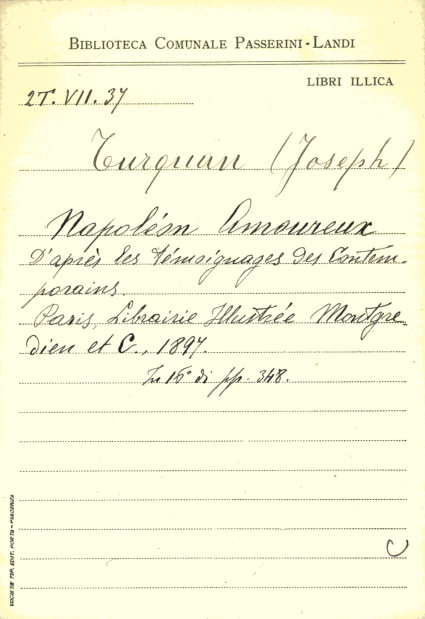 BIBLIOTECA COMUNALE PASSERINI-LANDI
LIBRI ILLICA
2T. VII. 37
Turquan (Joseph)
Napoléon Amoureux
D'après les témoignages des Contem-
porains.
Paris, Librairie Illustrée Montgre-
dien et C., 1897.
In 16° di pp. 348.
C
SOCIETÀ TIP. EDIT. PORTA - PIACENZA